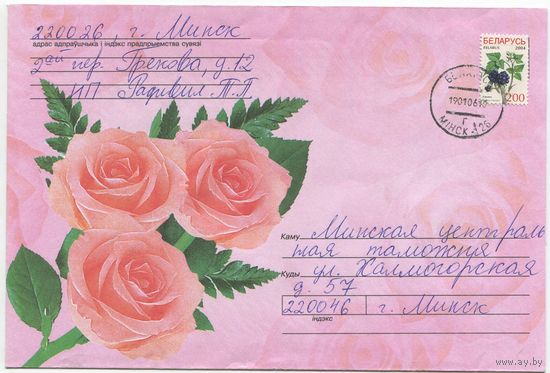 220026, г. Минск
адрас адпраўшчыка і індэкс прадпрыемства сувязі
2ой пер. Грекова, д. 12
ИП
БЕЛАРУСЬ
BELARUS 2004
200
190106
МІНСК-26
Каму Минская централь
ная таможня
Куды ул. Халмогорская
д. 57
220046 г. Минск
індэкс
www.ay.by